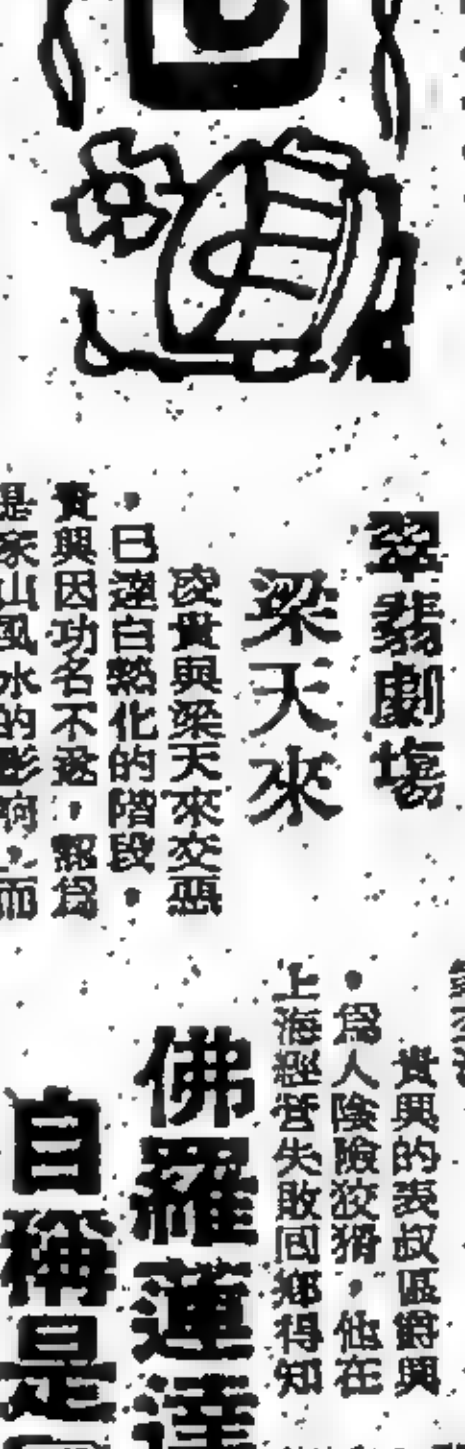 翠翡劇場
梁天來
凌貴興梁天來交惡
，已達白熱化的階段。
貴興因功名不遂，認為
是家山風水的影响，而
貴興的表叔區爵興
，為人陰險狡猾，他在
上海經營失敗回鄉得知
佛羅蓮達
自稱是